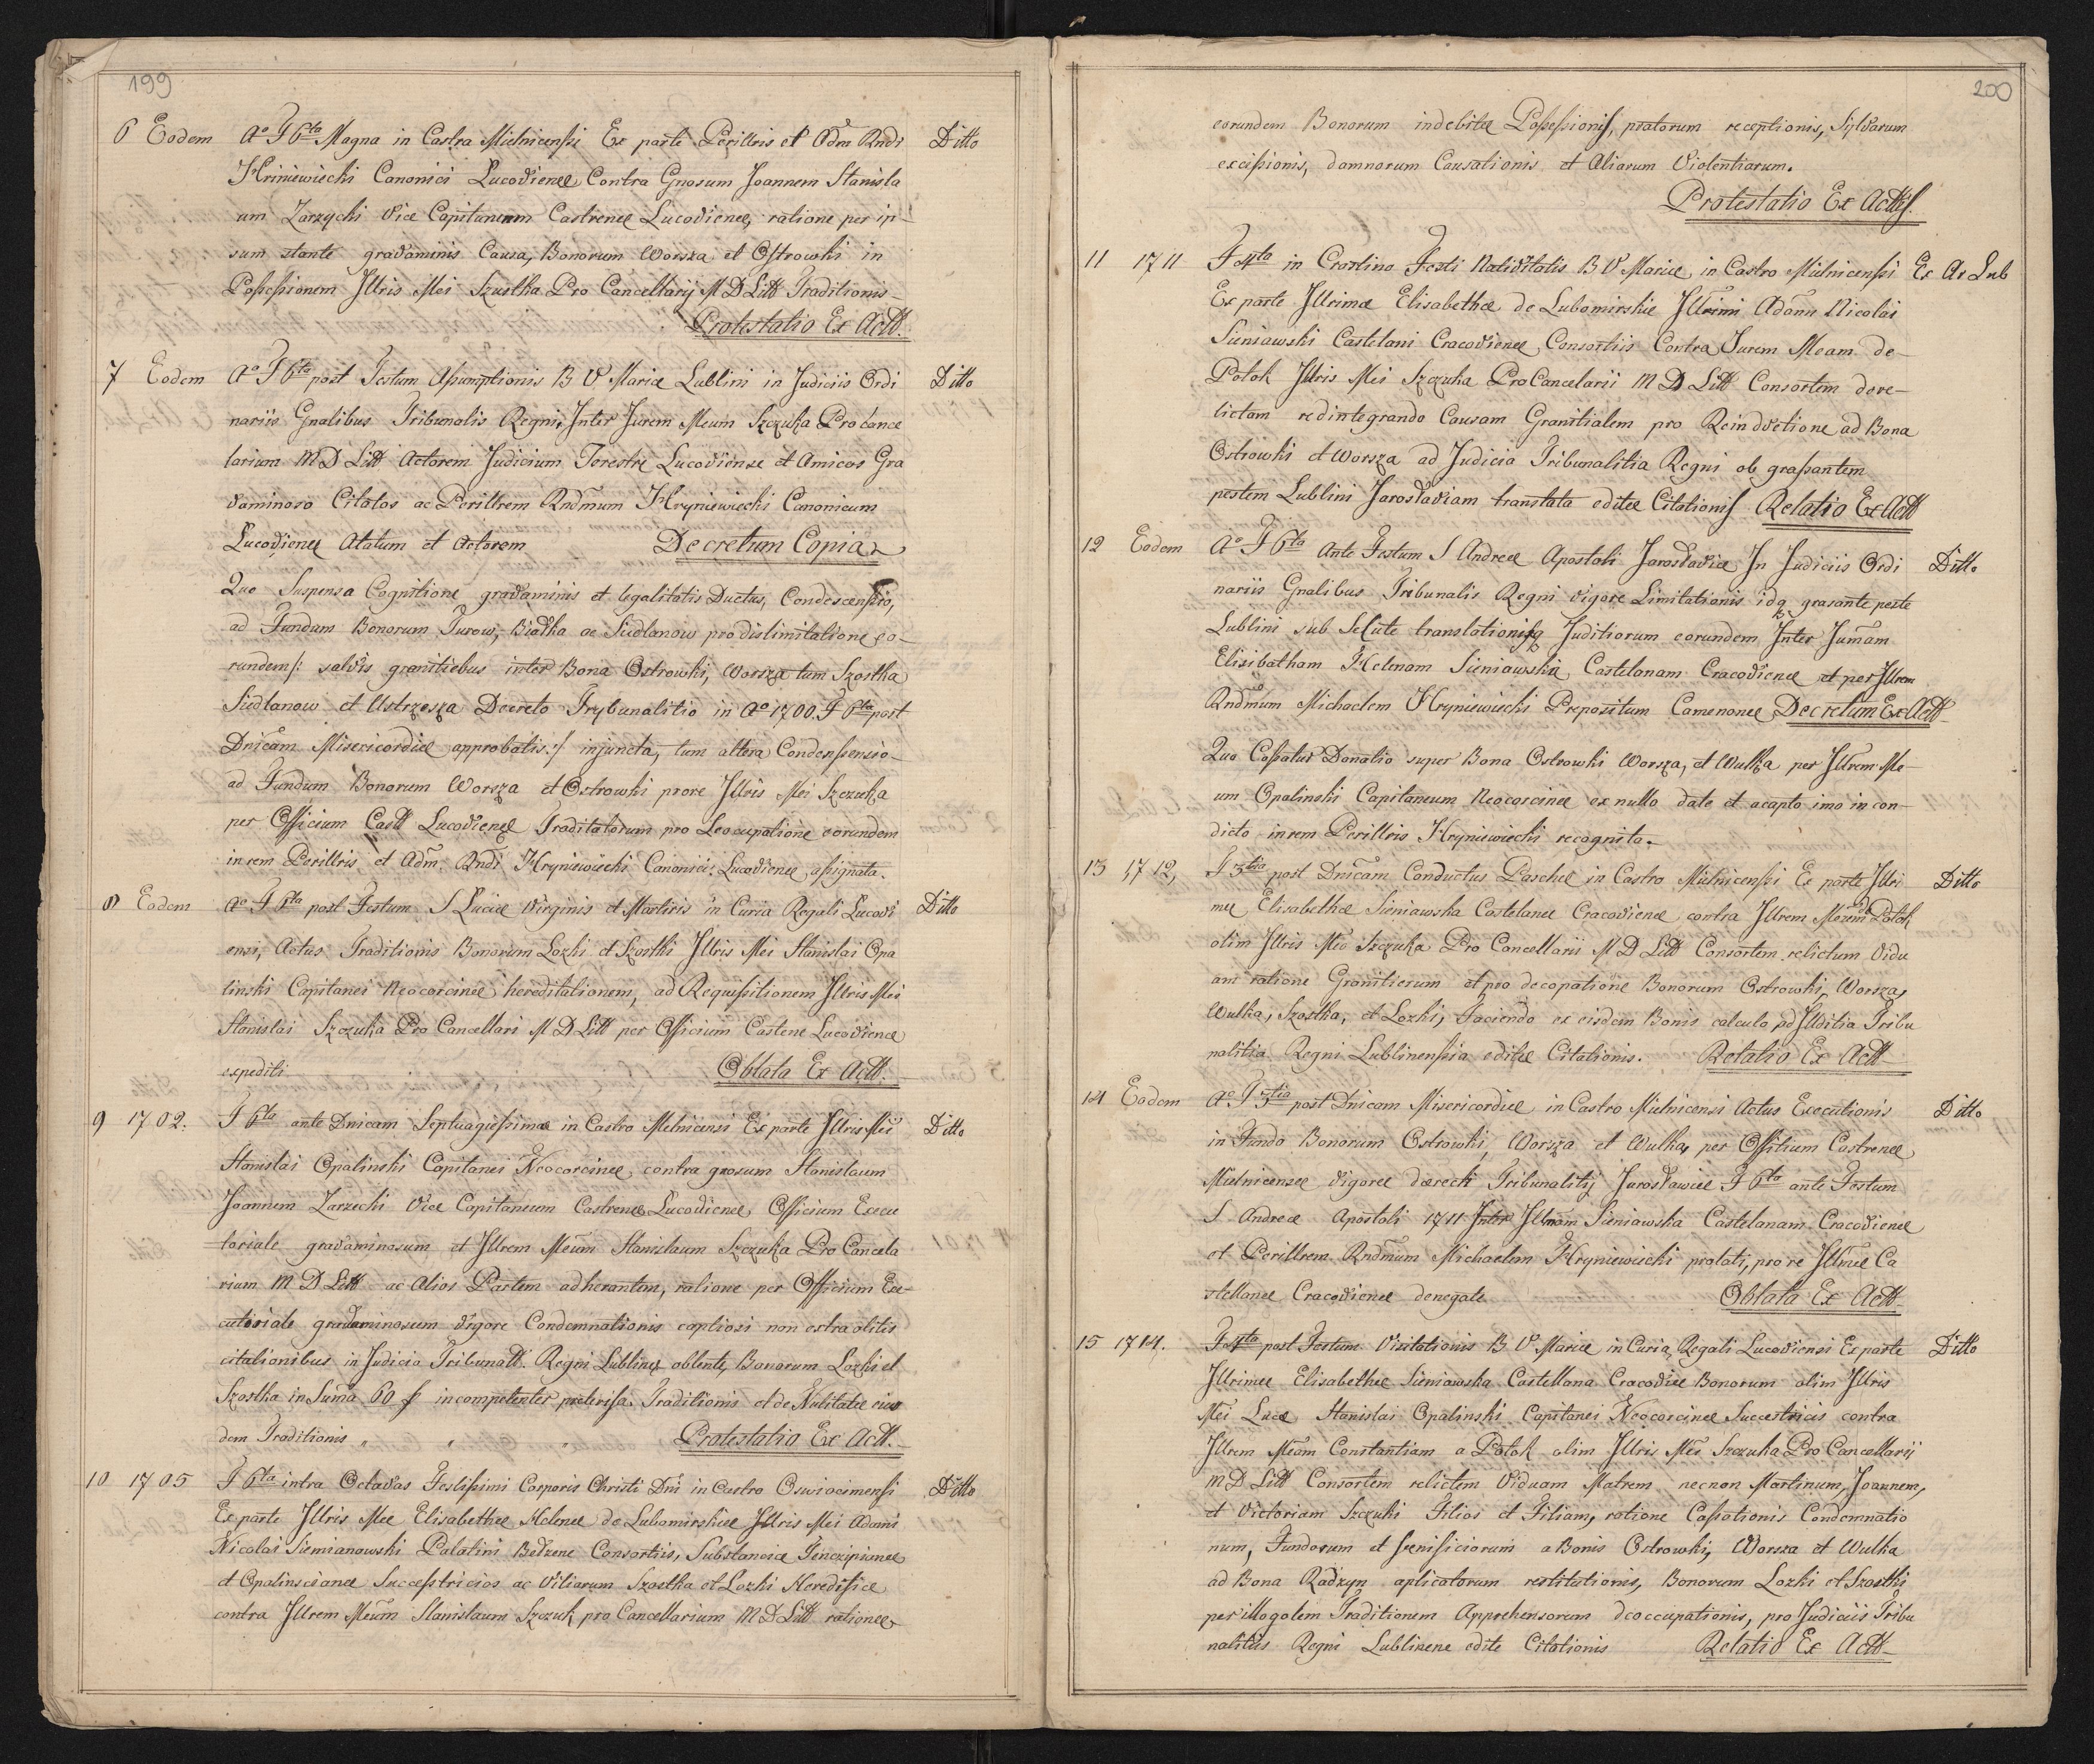 199
6 Eodem Aº F 6ta Magna in Castra Mielnicenſsi Ex parte Perillris et Adm Rndi Ditto
Hriniewiechi Canonici Lucoviencè Contra Gnosum Joannem Stanisla
um Zarzychi Vice Capitaneum Castrencè Lucoviencè, ratione per ip-
sum stante gravaminis Causa, Bonorum Worsza et Ostrowki in
Poſseſsionem Jllris Mei Szustka Pro Cancellarij M D Litt Traditionis-
Protestatio Ex Actt.
7 Eodem Aº F 6ta post Festum Aſsumptionis B V Mariæ Lublini in Judiciis Ordi Ditto
nariis Gnalibus Tribunalis Regni, Inter Jurem Meum Szczuka Procance
larium M D Litt Actorem Judicium Terestre Lucoviense et Amicos Gra
vaminoso Citatos ac Perillrem Rndmum Hryniewiechi Canonicum
Lucoviencè Atatum et Actorem Decretum Copia
Quo Suspensa Cognitione gravaminis et legalitatis Ductus, Condescenſsio,
ad Fundum Bonorum Turow, Białka ac Siedlanow pro distimitatione eo-
rundem /: salvis granitiebus inter Bona Ostrowki, Worsza tum Szostka
Siedlanow et Ustrzesza Decreto Trybunalitio in Aº 1700. F 6ta post
Dnicam Misericordiæ approbatis :/ injuncta, tum altera Condesſsensio-
ad Fundum Bonorum Worsza et Ostrowki prore Jllris Mei Szczuka
per Officium Castt Lucoviencè Traditatorum pro Leocupatione eorundem
in rem Perillris et Adm. Rndi Hryniewiechi Canonici Lucoviencè aſsignata.
8 Eodem Aº F 6ta post Festum S Luciæ Virginis et Martiris in Curia Regali Lucovi Ditto
ensi, Actus Traditionis Bonorum Lozki et Szostki Jllris Mei Stanislai Opa
linski Capitanei Neocorcinæ hereditationem, ad Requiſsitionem Jllris Mei
Stanislai Szczuka Pro Cancellari M D Litt per Officium Castene Lucoviencè
expediti Oblata Ex Actt.
9 1702. F 6ta ante Dnicam Septuageſsimæ in Castro Melnicensi Ex parte Jllris Mei Ditto
Stanislai Opalinski Capitanei Neocorcinæ, contra gnosum Stanislaum
Joannem Zarzechi Vice Capitaneum Castrencè Lucoviencè Officium Execu
toriale gravaminosum et Jllrem Meum Stanislaum Szczuka Pro Cancela
rium M D Litt ac Alios Partem adherantem, ratione per Officium Exe-
cutoriale gravaminosum vigore Condemnationis captiosi non extraolitis
citationibus in Judicia Tribunatt. Regni Lubline oblente, Bonorum Lozki et
Szostka in Suma 60 f incompetenter preteriſsa Traditionis et de Nulitate eius
dem Traditionis „ „ „ Protestatio Ex Actt.
10 1705 F 6ta intra Octavas Festiſsimi Corporis Christi Dni in Castro Oswiecimenſsi Ditto
Ex parte Jllris Meæ Elisabethæ Helenæ de Lubomirskiæ Jllris Mei Adami
Nicolai Siemianowski Palatini Bełzene Consortiis, Substancia Tenczipianæ
et Opalinscianæ Succeſstricios ac Viliarum Szostka et Lozki Heredisicæ
contra Jllrem Meum Stanislaum Szczuk, pro Cancellarium M D Litt rationeæ
200
eorundem Bonorum indebitæ Poſseſsionis, pratorum receptionis, Sylvarum
exciſsionis, damnorum Causationis et Aliarum Violentiarum.
Protestatio Ex Acttis.
11 1711 F 4ta in Crastino Festi Nativitatis B V Mariæ in Castro Mielnicenſsi Ex Ar Lub
Ex parte Jllrimæ Elisabethæ de Lubomirskie Jllrimi Adami Nicolai
Sieniawski Castelani Cracoviencè Consortiis Contra Jurem Meam de-
Potok Jllris Mei Szczuka ProCancelarii M D Litt Consortem dere-
lictam redintegrando Causam Granitialem pro Reinductione ad Bona
Ostrowki et Worsza ad Judicia Tribunalitia Regni ob graſsantem
pestem Lublini Jarosłaviam translata editæ Citationis Relatio Ex Actt
12 Eodem Aº F 6ta Ante Festum S Andreæ Apostoli Jarosłaviæ In Judiciis Ordi Ditto
nariis Gnalibus Tribunalis Regni vigore Limitationis idq grasante peste
Lublini sub Selute translationisq Juditiorum eorundem Inter Jumam
Elisibatham Helenam Sieniawska Castelanam Cracoviencè et per Jllrem
Rndmum Michaelem Hryniewiechi Prepositum Camenoneè Decretum Ex Actt
Quo Caſsatur Donatio super Bona Ostrowki Worsza, et Wulka per Jllrem Me-
um Opalinski Capitaneum Neocorcineè ex nullo date et acapto imo in con-
dicto in rem Perillris Hryniewiechi recognita.
13 1712, F 3tia post Dnicam Conductus Paschæ in Castro Mielnicenſsi Ex parte Jllri Ditto
meè Elisabethæ Sieniawska Castelaneè Cracoviencè contra Jllrem Moram de Potok
olim Jllris Mei Szczuka Pro Cancellarii M D Litt Consortem relictum Vidu
am ratione Granitierum et pro decopatione Bonorum Ostrowki, Worsza,
Wulka, Szostka, et Lozki, Faciendo ex eisdem Bonis calculo ad Juditia Tribu
nalitia Regni Lublinenſsia editæ Citationis. Relatio Ex Actt
14 Eodem Aº F 3tia post Dnicam Misericordiæ in Castro Mielnicensi Actus Executionis Ditto
in Fundo Bonorum Ostrowki, Worsza et Wulka, per Offitium Castrencè
Mielnicenseè vigoreè decreti Tribunalitij Jarosławiæ F 6ta ante Festum
S Andreæ Apostoli 1711 Inter Jllmam Sieniawska Castelanam Cracoviencè
et Perillrem Rndmum Michaelem Hryniewiechi prolati, pro re Jllmeè Ca
stellaneè Cracoviencè denegate Oblata Ex Actt
15 1714. F 4ta post Festum Visitationis B V Mariæ in Curia Regali Lucoviensi Ex parte Ditto
Jllrimeè Elisabethæ Sieniawska Castellana Cracoviæ Bonorum olim Jllris
Mei Lucæ Stanislai Opalinski Capitanei Neocorcineè Succestricis contra
Jllrem Meam Constantiam a Potok olim Jllris Mei Szczuka Pro Cancellarij
M D Litt Consortem relictem Viduam Matrem necnon Martinum, Joannem,
et Victoriam Szczuki Filios et Filiam, ratione Caſsationis Condemnatio
num, Fundorum et benificiorum a Bonis Ostrowki, Worsza et Wulka
ad Bona Radzyn aplicatorum restitutionis, Bonorum Lozki et Szostki
per illegalem Traditionem Apprehensorum deoccupationis, pro Judiciis Tribu
nalitiis Regni Lublinene edite Citationis Relatio Ex Actt